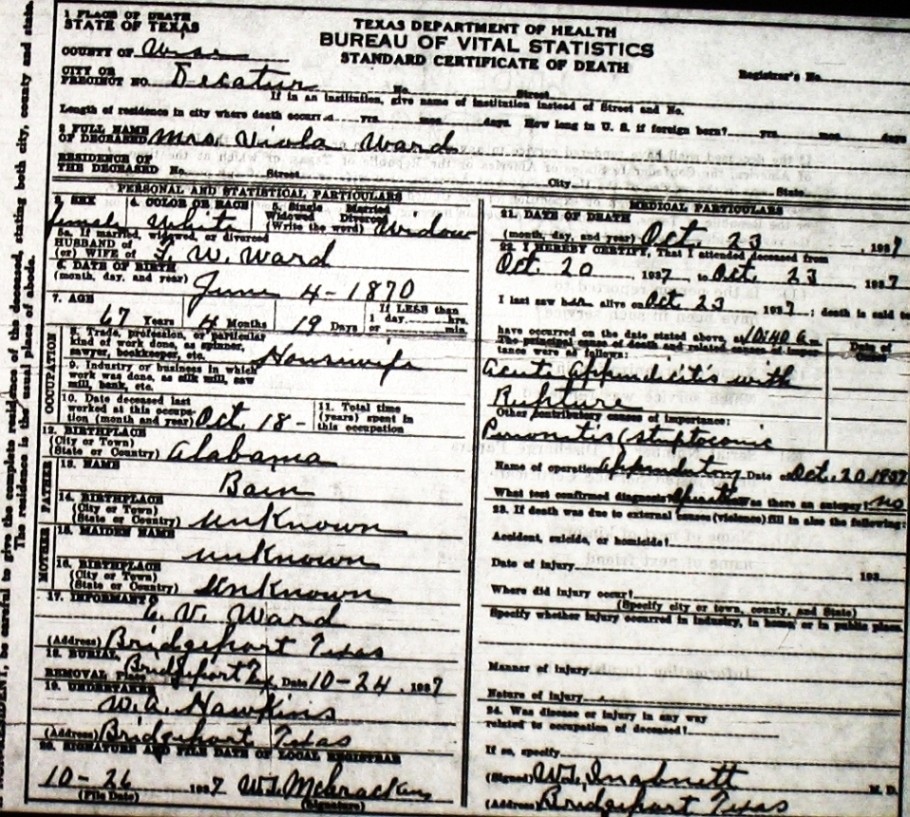 TEXAS DEPARTMENT OF HEALTH
BUREAU OF VITAL STATISTICS
STANDARD CERTIFICATE OF DEATH
1 PLACE OF DEATH
STATE OF TEXAS
COUNTY OF Wise
Registrar's No.
CITY OR PRECINCT NO. Decatur No. Street
If in an institution, give name of institution instead of Street and No.
Length of residence in city where death occurred yrs. mos. days. How long in U. S. if foreign born? yrs. mos. days
2 FULL NAME OF DECEASED Mrs. Viola Ward
RESIDENCE OF THE DECEASED No. Street City State
PERSONAL AND STATISTICAL PARTICULARS
3. SEX female 4. COLOR OR RACE White 5. Single Married Widowed Divorced (Write the word) Widow
5a. If married, widowed, or divorced
HUSBAND of (or) WIFE of W. Ward
6. DATE OF BIRTH (month, day, and year) June 4-1870
7. AGE 67 Years 4 Months 19 Days If LESS than 1 day hrs. or min.
OCCUPATION
8. Trade, profession, or particular kind of work done, as spinner, sawyer, bookkeeper, etc. Housewife
9. Industry or business in which work was done, as silk mill, saw mill, bank, etc.
10. Date deceased last worked at this occupation (month and year) Oct. 18-
11. Total time (years) spent in this occupation
12. BIRTHPLACE (City or Town) (State or Country) Alabama
FATHER
13. NAME Bain
14. BIRTHPLACE (City or Town) (State or Country) unknown
MOTHER
15. MAIDEN NAME unknown
16. BIRTHPLACE (City or Town) (State or Country) Unknown
17. INFORMANT E. V. Ward
(Address) Bridgeport Texas
18. BURIAL, REMOVAL Place Bridgeport Tex Date 10-24, 1937
19. UNDERTAKER W. A. Hawkins
(Address) Bridgeport Texas
20. SIGNATURE AND FILE DATE OF LOCAL REGISTRAR
10-26 1937
(File Date) (Signature)
MEDICAL PARTICULARS
21. DATE OF DEATH
(month, day, and year) Oct. 23, 1937
22. I HEREBY CERTIFY, That I attended deceased from
Oct. 20 1937, to Oct. 23 1937
I last saw alive on Oct 23 1937; death is said to
have occurred on the date stated above, at 10:40 a.m.
The principal cause of death and related causes of importance were as follows:
Date of Onset
Acute Appendicitis with
Other contributory causes of importance:
Name of operation Date Oct. 20 1937
What test confirmed diagnosis? Was there an autopsy? no
23. If death was due to external causes (violence) fill in also the following:
Accident, suicide, or homicide?
Date of injury , 193
Where did injury occur?
(Specify city or town, county, and State)
Specify whether injury occurred in industry, in home, or in public place.
Manner of injury
Nature of injury
24. Was disease or injury in any way related to occupation of deceased?
If so, specify
(Signed) M. D.
(Address) Bridgeport Texas
be careful to give the complete residence of the deceased, stating both city, county and state.
The residence is the usual place of abode.